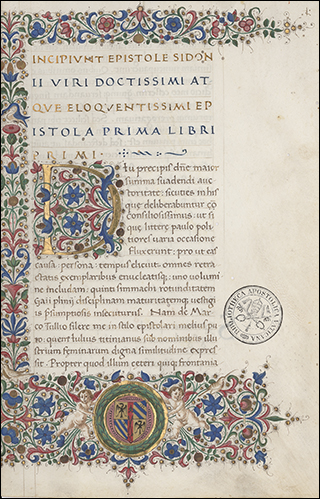 INCIPIVNT EPISTOLE SIDON
II VIRI DOCTISSIMI AT
QVE ELOQVENTISSIMI EP
ISTOLA PRIMA LIBRI
PRIMI
D Iu precipis dñe maior
summa suadendi auc
toritate; sicuti es in his
que deliberabuntur cō
consiliosissimus; ut si
que littere paulo poli
tiores varia occasione
Fluxerint; pro ut eas
causa; persona; tempus elicuit; omnes retra
ctatis exemplaribus enucleatisq; uno volumi
ne includam; quinti simmachi rotunditatem
Gaii plinii disciplinam maturitatemq; vestigi
is psumptiosis insecuturus. Nam de Mar
co Tullio silere me in stilo epistolari melius pu
to; quem iulus titianus sub nominibus illu
strium feminarum digna similitudine expres
sit. Propter quod illum ceteri quiq; frontania
BIBLIOTHECA APOSTOLICA VATICANA